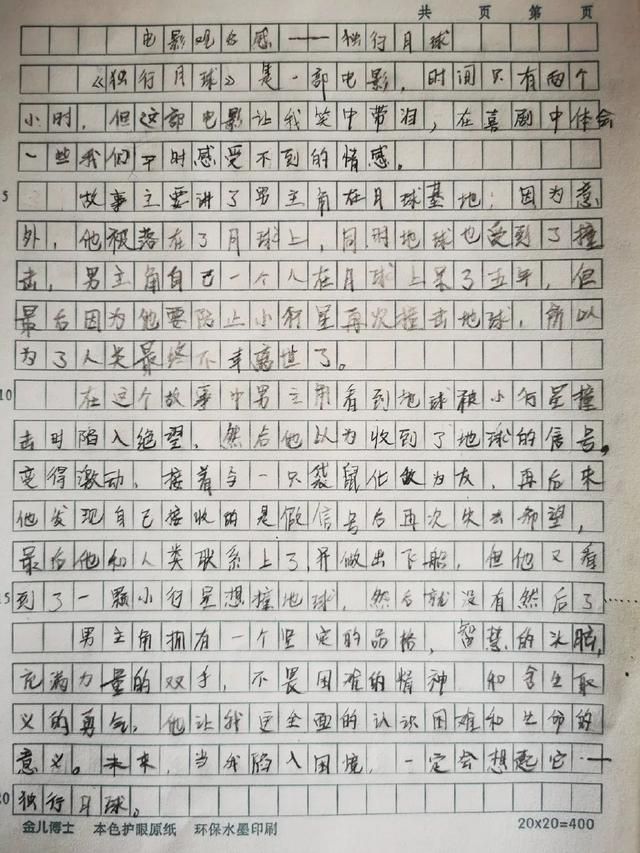 共 页 第 页
电影观后感——独行月球
《独行月球》是一部电影，时间只有两个
小时，但这部电影让我笑中带泪，在喜剧中体会
一些我们平时感受不到的情感。
5 故事主要讲了男主角在月球基地；因为意
外，他被落在了月球上，同时地球也受到了撞
击，男主角自己一个人在月球上呆了五年，但
最后因为他要阻止小行星再次撞击地球，所以
为了人类最终不幸离世了。
10 在这个故事中男主角看到地球被小行星撞
击时陷入绝望，然后他以为收到了地球的信号，
变得激动，接着与一只袋鼠化敌为友，再后来
他发现自己接收的是假信号后再次失去希望，
最后他和人类联系上了，并做出飞船，但他又看
15 到了一颗小行星想撞地球，然后就没有然后了……
男主角拥有一个坚定的品格，智慧的头脑，
充满力量的双手，不畏困难的精神 和舍生取
义的勇气，他让我更全面的认识困难和生命的
意义。未来，当我陷入困境，一定会想起它——
20 独行月球。
金儿博士 本色护眼原纸 环保水墨印刷 20×20=400